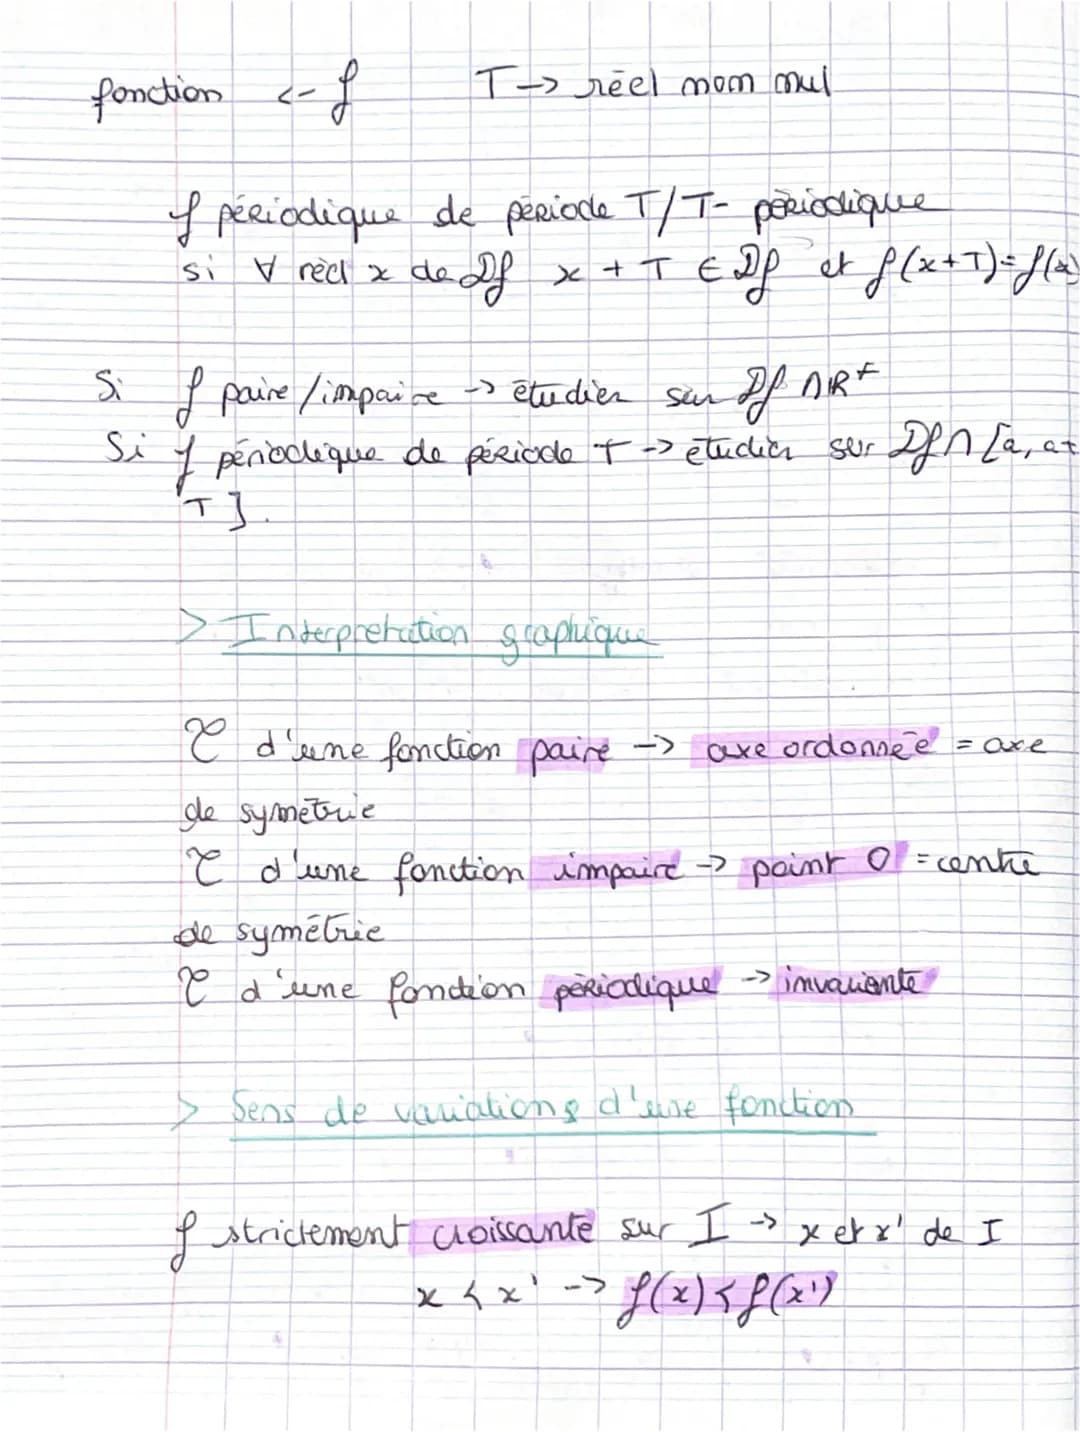 fonction <- f T -> réel non nul
f périodique de période T/T- périodique
si ∀ réel x de Df x + T ∈ Df et f(x+T)=f(x)
Si f paire/impaire -> étudier sur Df ∩ R+
Si f périodique de période T -> étudier sur Df ∩ [a, a+
T].
> Interpretation graphique
C d'une fonction paire -> axe ordonnée = axe
de symétrie
C d'une fonction impaire -> point O = centre
de symétrie
C d'une fonction périodique -> invariante
> Sens de variations d'une fonction
f strictement croissante sur I -> x et x' de I
x < x' -> f(x) < f(x')